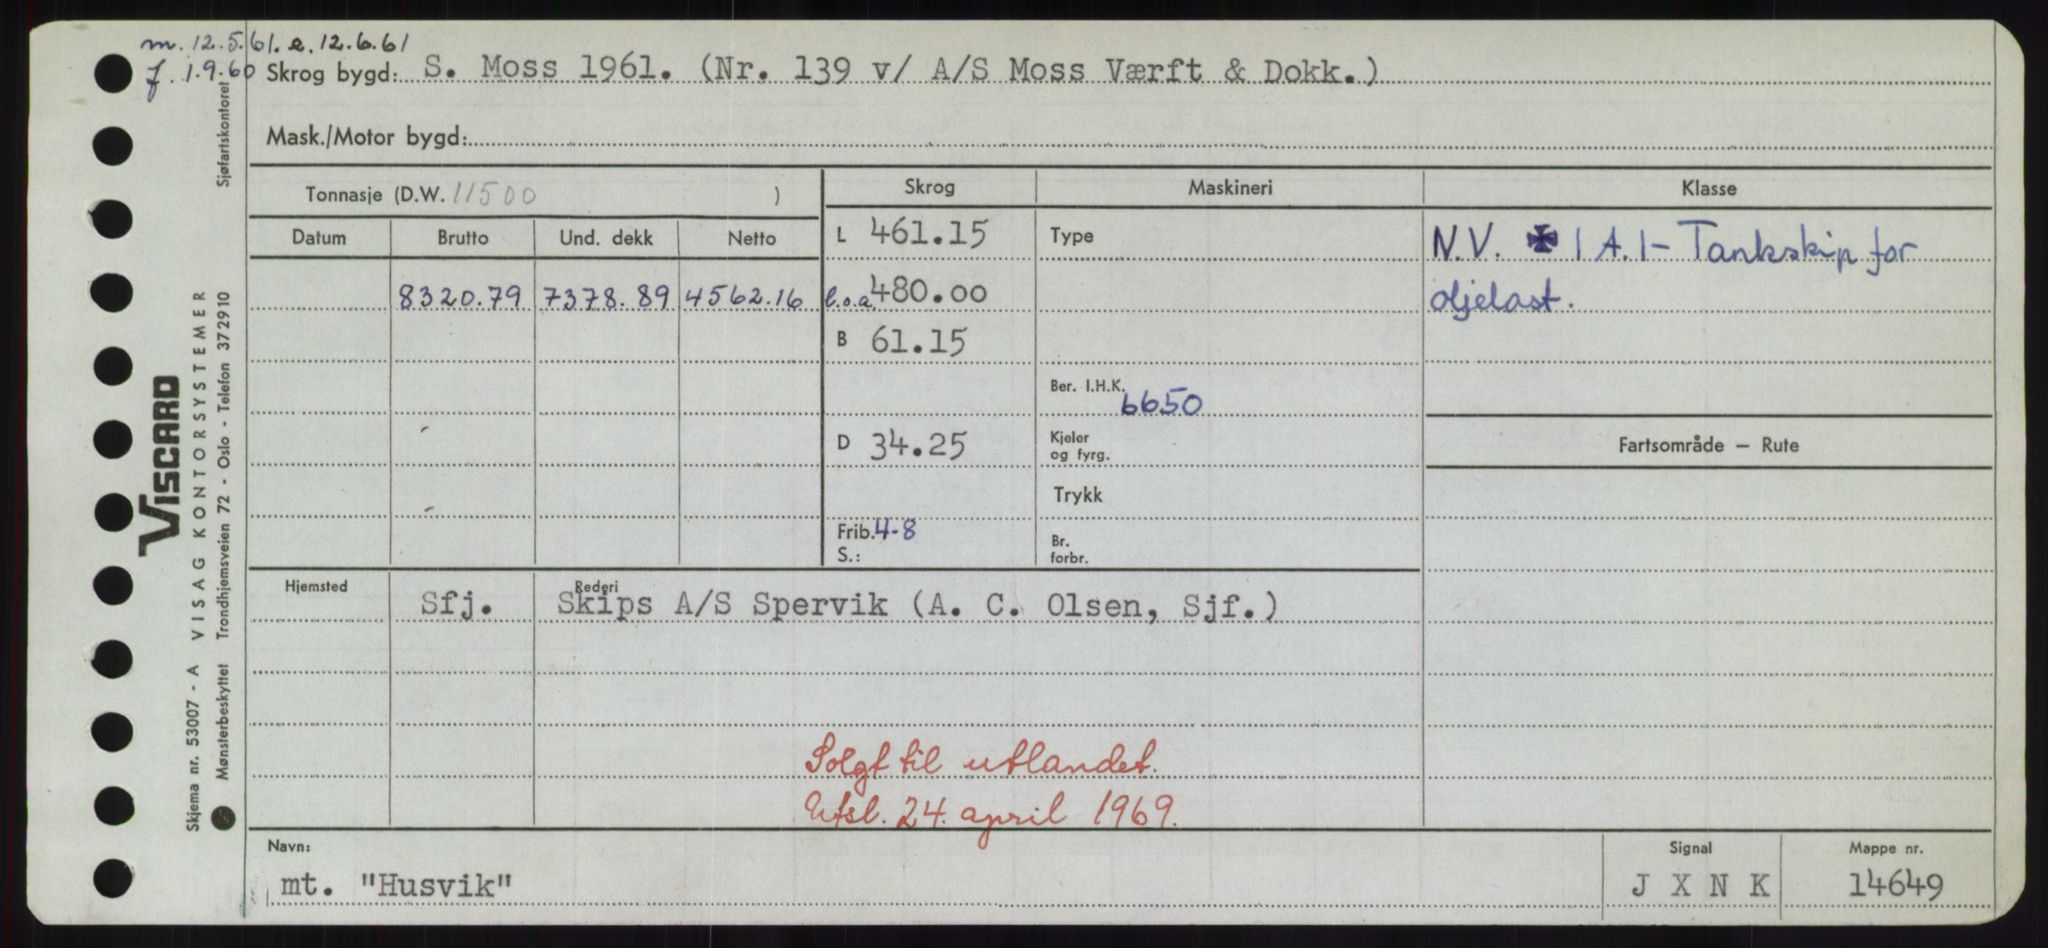 m. 12.5.61. e. 12.6.61
f. 1.9.60
Skrog bygd: S. Moss 1961. (Nr. 139 v/ A/S Moss Værft & Dokk.)
Mask./Motor bygd:
Tonnasje (D.W. 11500 )
Skrog Maskineri Klasse
Datum Brutto Und. dekk Netto
L 461.15 Type
N.V. ✠ 1 A.1- Tankskip for
8320.79 7378.89 4562.16 l.o.a. 480.00
oljelast.
B 61.15
Ber. I.H.K. 6650
D 34.25
Kjeler
og fyrg.
Fartsområde – Rute
Trykk
Frib. 4-8
S.:
Br.
forbr.
Hjemsted Rederi
Sfj. Skips A/S Spervik (A. C. Olsen, Sjf.)
Solgt til utlandet.
Utsl. 24. april 1969.
Navn: Signal Mappe nr.
mt. "Husvik" J X N K 14649
VISCARD
Skjema nr. 53007 - A VISAG KONTORSYSTEMER
Mønsterbeskyttet Trondhjemsveien 72 - Oslo - Telefon 372910 Sjøfartskontoret